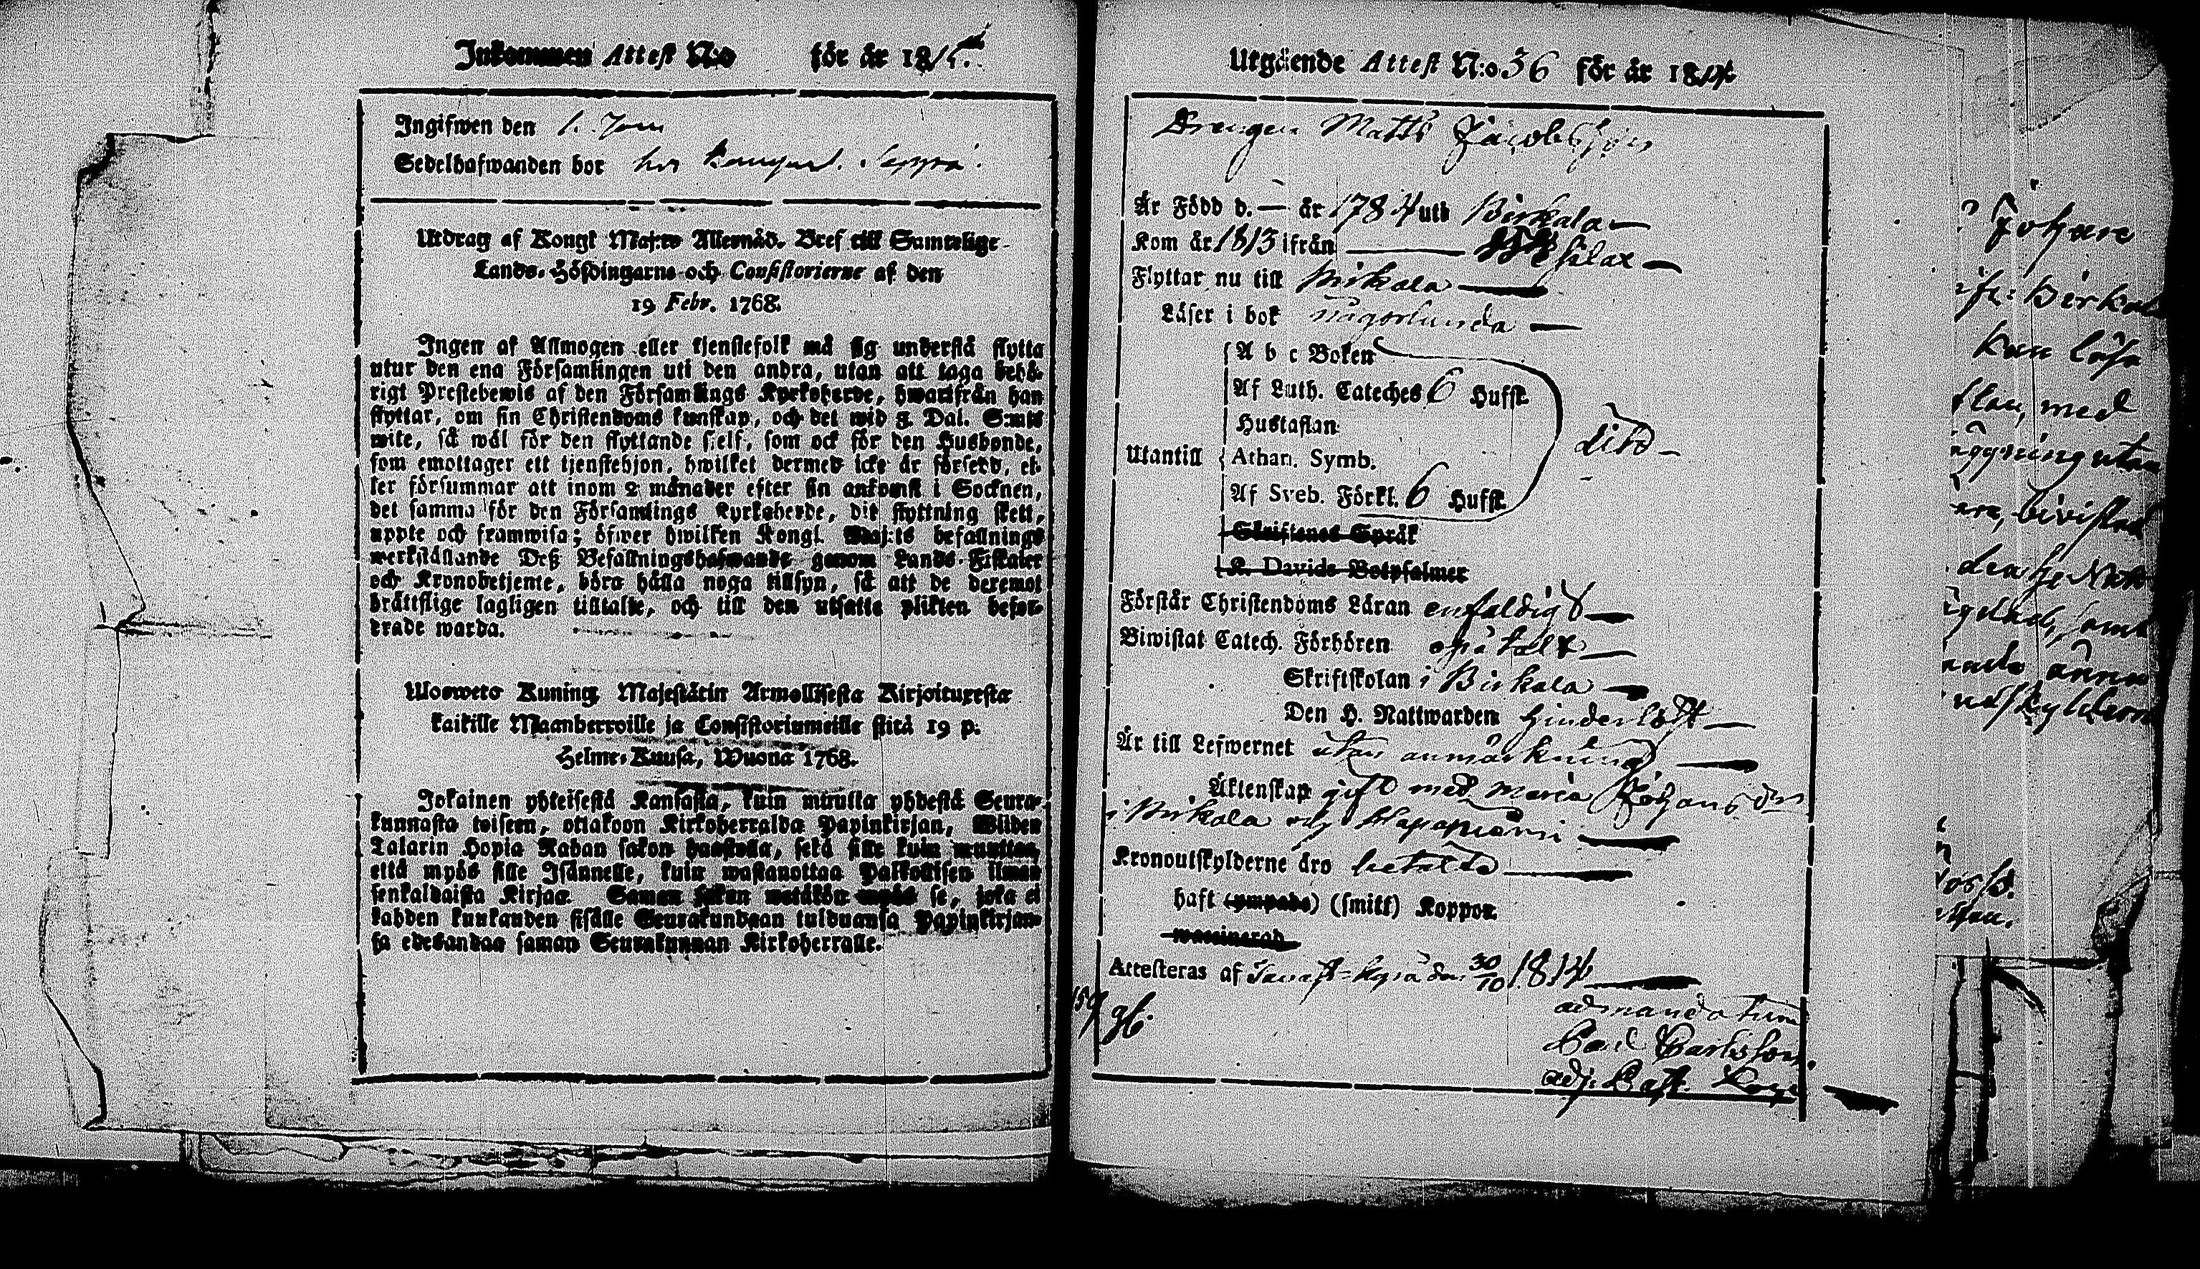 Inkommen Attest N:o för år 1815.
Ingifwen den 1. Jan
Sedelhafwanden bor hos
Utdrag af Kongl Maj:ts Allernåd. Bref till Samtelige
Lands-Höfdingarne och Consistorierne af den
19 Febr. 1768.
Ingen af Allmogen eller tjenstefolk må sig understå flytta
utur den ena Församlingen uti den andra, utan att taga behö-
rigt Prestebewis af den Församlings Kyrkoherde, hwarifrån han
flyttar, om sin Christendoms kunskap, och det wid 3 Dal. S:mts
wite, så wäl för den flyttande sjelf, som ock för den Husbonde,
som emottager ett tjenstehjon, hwilket dermed icke är försedt, el-
ler försummar att inom 2 månader efter sin ankomst i Socknen,
det samma för den Församlings Kyrkoherde, dit flyttning skett,
uppte och framwisa; öfwer hwilken Kongl. Maj:ts befallnings
werkställande Deß Befallningshafwande genom Lands-Fiskaler
och Kronobetjente, böra hålla noga tillsyn, så att de deremot
bråttslige lagligen tilltalte, och till den utsatte plikten befor-
drade warda.
Ulosweto Kuning. Majestätin Armollisesta Kirjoituxesta
kaikille Maanherroille ja Consistoriumeille siitä 19 p.
Helme-Kuusa, Wuona 1768.
Jokainen yhteisestä Kansasta, kuin muulla yhdestä Seura-
kunnasta toiseen, ottakoon Kirkoherralda Papinkirjan, Wiiden
Talarin Hopia Rahan sakon haastolla, sekä sille kuin muuttaa,
että myös sille Isännelle, kuin wastanottaa Palkollisen ilman
senkaldaista Kirjaa. Saman sakon wetäköön myös se, joka ei
kahden kuukauden sisälle Seurakundaan tulduansa Papinkirjan-
sa edesandaa saman Seurakunnan Kirkoherralle.
Utgående Attest N:o 36 för år 1814
Drengen Matts Jacobsson
Är Född d. — år 1784 uti Birkala
Kom år 1813 ifrån
Flyttar nu till Birkala
Läser i bok någorlunda
A b c Boken
Af Luth. Cateches 6 Hufst.
Hustaflan
Utantill Athan. Symb. dito
Af Sveb. Förkl. 6 Hufst.
Skriftenes Språk
K. Davids Botpsalmer
Förstår Christendoms Läran enfaldigt
Biwistat Catech. Förhören
Skriftskolan i Birkala
Den H. Nattwarden hinderlöst
Är till Lefwernet utan anmärkning
Äktenskap gift med Maria Johans dr
i Birkala och
Kronoutskylderne äro betalda
haft (ympade) (smitt) Koppor
waccinerad
Attesteras af den 30/10 1814
ad mandatum
Carl Carlsson.
adj.
Johan
Birkala
kan läsa
med
utan
bivistat
samt